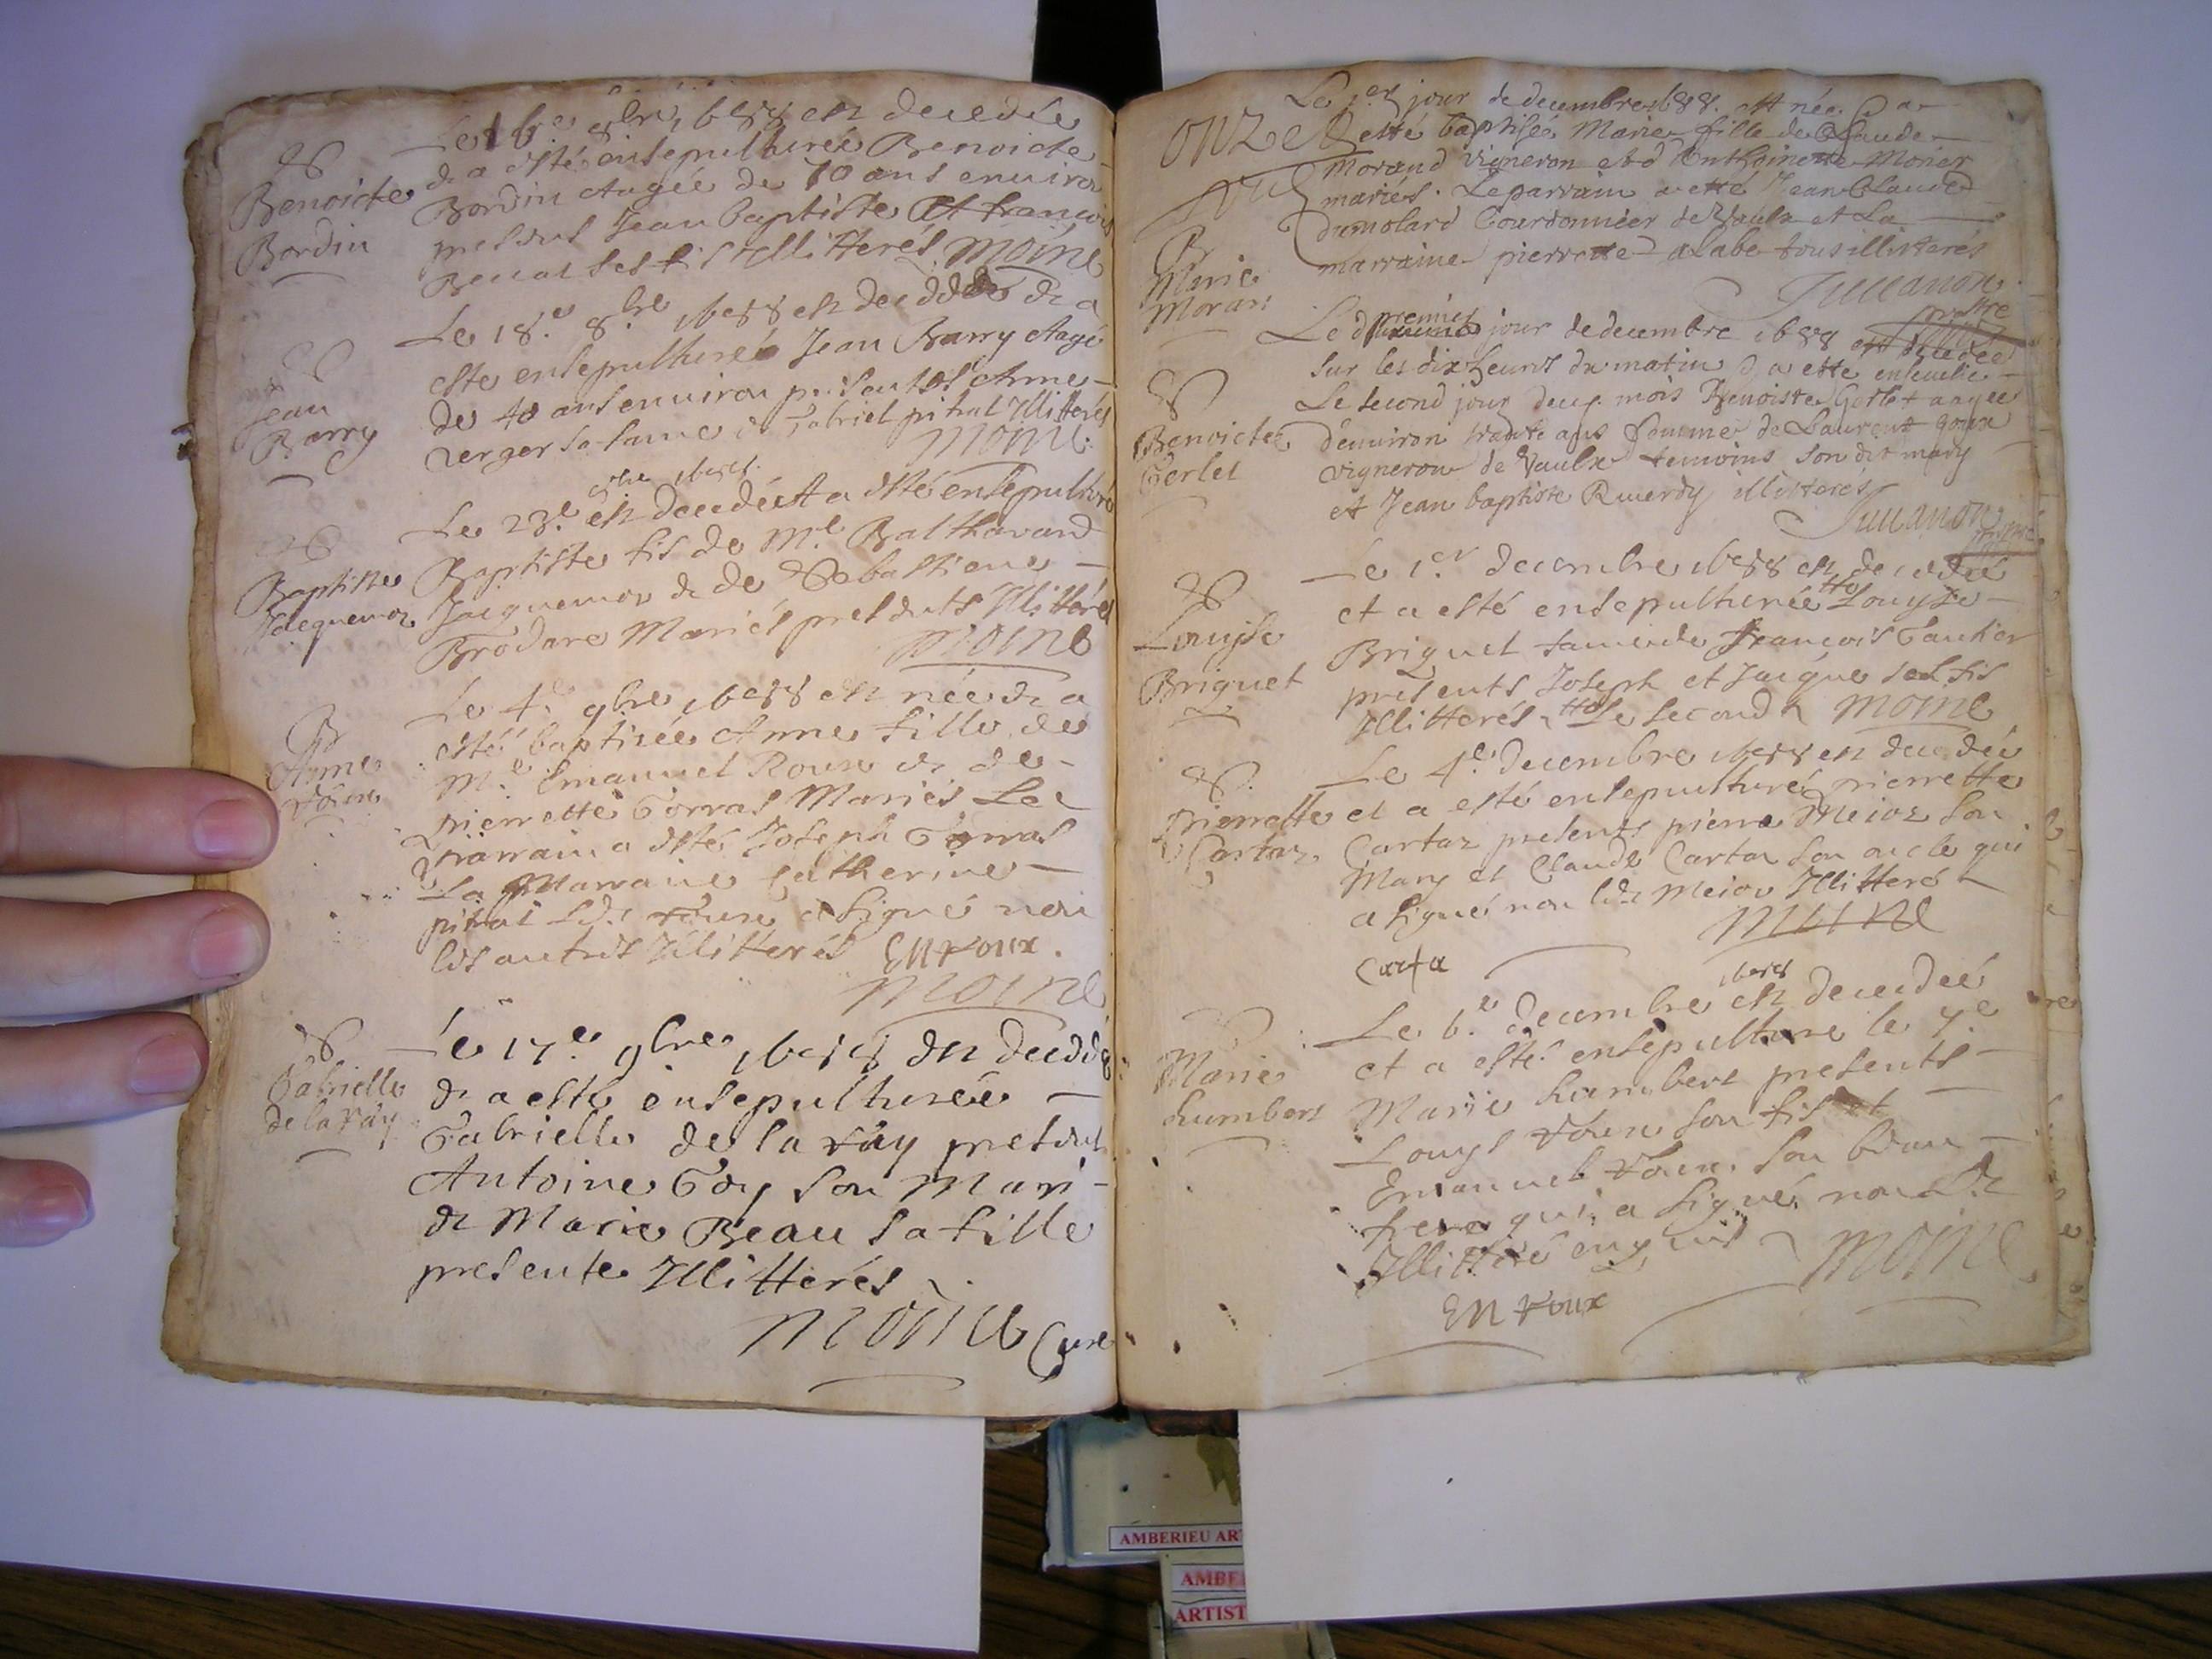 Le 16.e 8bre 1688 est decedée
& a esté ensepulturée Benoicte
Bordin Aagée de 70 ans environ
presens Jean baptiste Et francois
ses fis Illitterés Moine
Benoicte
Bordin
Le 18.e 8bre 1688 est decedde & a
esté ensepulturé Jean Barry Aagé
de 40 ans environ presentes Anne
verger sa fame & Gabriel pitrat Illitterés
Moine
Jean
Barry
8bre 1688.
Le 23.e est decedé Et a esté ensepulturé
Baptiste fis de M.e Balthazard
Jacquemoz & de Sebastiene
Brodare Mariés presents Illitterés
Moine
Baptiste
Jacquemoz
Le 4.e 9bre 1688 est née & a
esté baptisée Anne fille de
M.e Emanuel Roux & de
pierrette Gorras Mariés Le
parrain a esté Joseph Gorras
La Marraine Catherine
pitrat led.t roux a signé non
les autres Illitterés EM roux.
Moine
Anne
roux
Le 17.e 9bre 1688 est decedde
& a esté ensepulturée
Gabrielle de la ray present
Antoine Goy son Mari
& Marie Beau sa fille
presente Illitterés
Moine Curé
Gabrielle
de la ray
Le 1er jour de decembre 1688. est née & a
esté baptisée Marie fille de Claude
Morand vigneron et d'Anthoinette Morier
mariés. Le parrain a etté Jean Claude
dumolard Courdonnier de Vaulx et La
marraine pierrette alabe tous illitterés
onze
Marie
Moran
premier
Le jour de decembre 1688 est decedée
sur les dix heures du matin & a etté ensevelie
Le second jour du p. mois Benoiste Gerlet aagée
d'environ trante ans femme de Laurent
vigneron de Vaulx temoins son dit mary
et Jean baptiste illitterés
Benoicte
Gerlet
Le 1.er decembre 1688 est decedée
et a esté ensepulturée Louyse
Briguet fame de francois Gautier
presents Joseph et Jacque ses fis
Illitterés le second Moine
Louyse
Briguet
Le 4.e Decembre 1688 est decedée
et a esté ensepulturé pierrette
Cartaz presents pierre Meioz son
Mary et Claude Carta son oncle qui
a signé non led.t Meioz Illitteré
Moine
Carta
pierrette
Cartaz
1688
Le 6.e decembre est decedeé
et a esté ensepulturé le 7.e
Marie humbert presents
Louys roux son fis et
Emanuel roux son beau
frere qui a signé non led.t
Illitteré enquis Moine
EM roux
Marie
humbert
AMBERIEU AR
AMBE
ARTIST